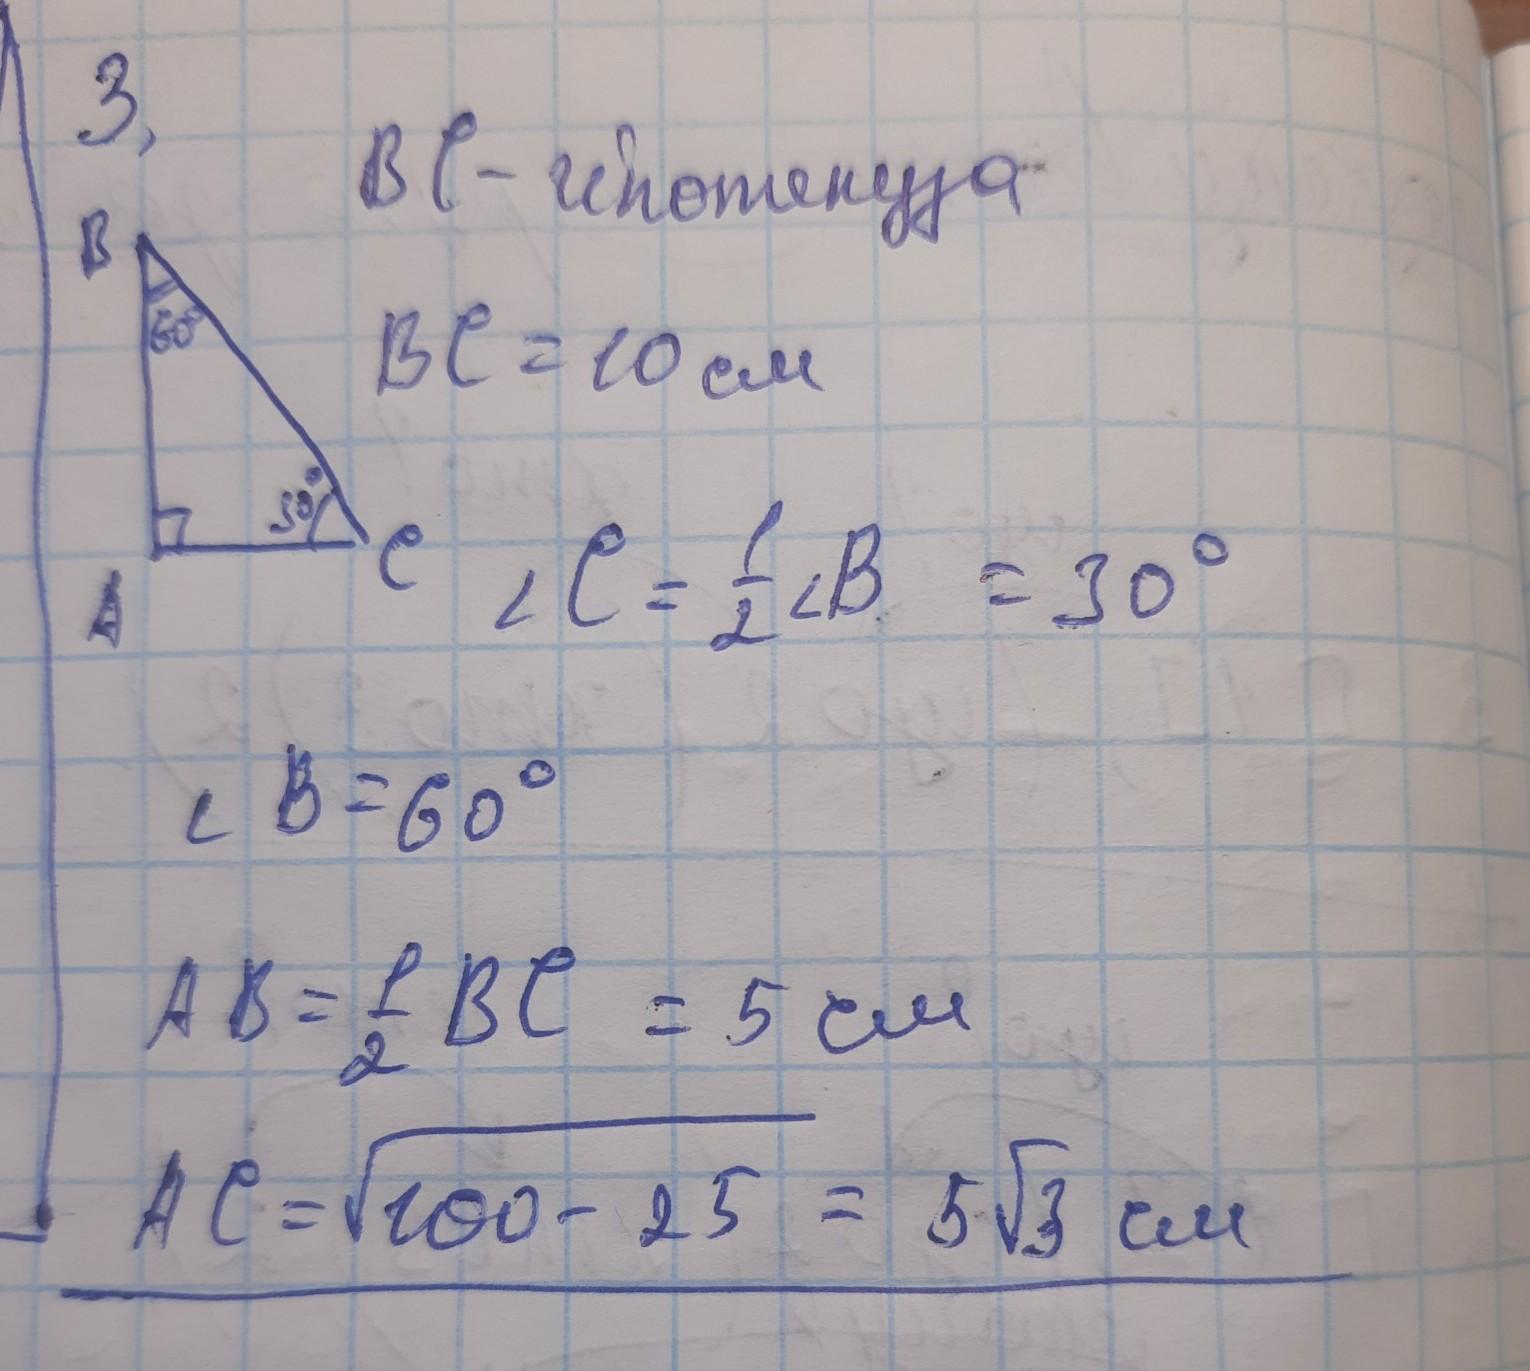 3,
BC - гіпотенуза
B
60°
BC = 10 см
30°
A
C
∠C = 1/2 ∠B = 30°
∠B = 60°
AB = 1/2 BC = 5 см
AC = √100 - 25 = 5√3 см